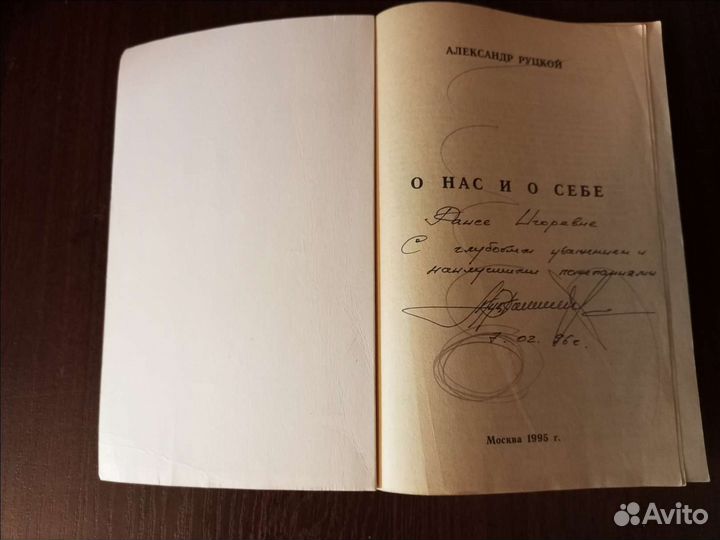 АЛЕКСАНДР РУЦКОЙ
О НАС И О СЕБЕ
Игоревне
С глубоким уважением и
наилучшими пожеланиями
7. 02. 96г.
Москва 1995 г.
Avito